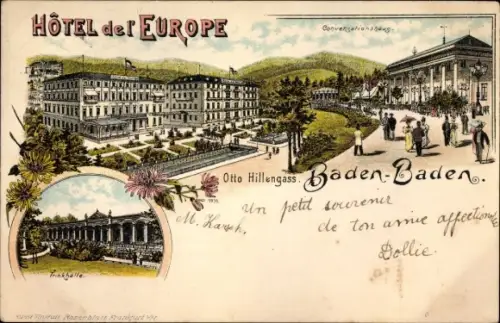 HÔTEL de l'EUROPE
Conversationshaus.
Otto Hillengass.
Baden-Baden.
Un petit souvenir
de ton amie affectionée
Dollie.
Trinkhalle.